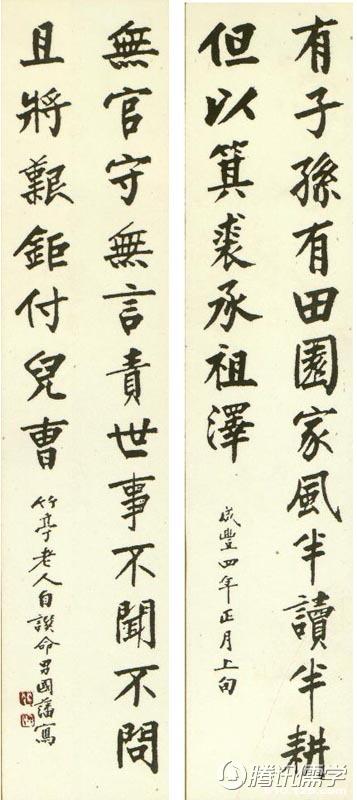 有子孫有田園家風半讀半耕
但以箕裘承祖澤
咸豐四年正月上旬
無官守無言責世事不聞不問
且將艱鉅付兒曹
竹亭老人自譔命男國藩寫
腾讯儒学